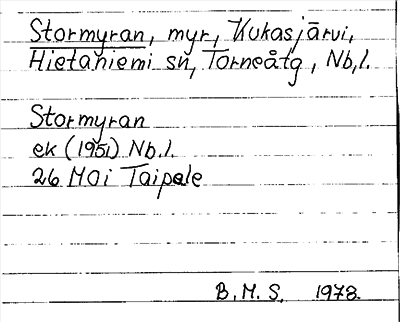 Stormyran, myr, Kukasjärvi,
Hietaniemi sn, Torneåtg, Nb,l.
Stormyran
ek (1951) Nb.l.
26 M0i Taipale
B.M.S. 1978.